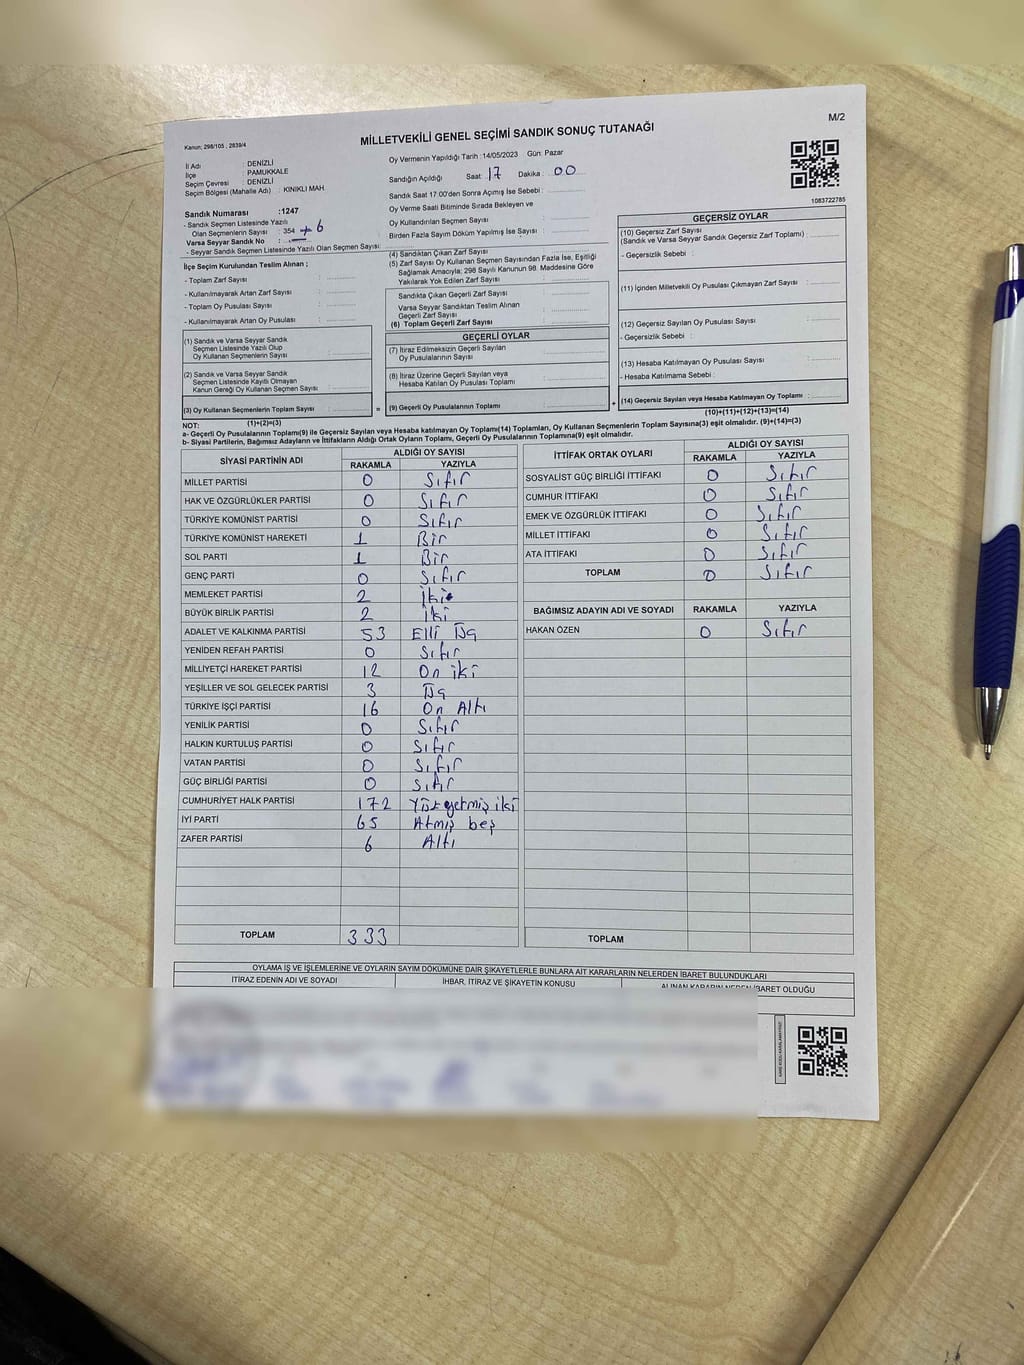 M/2
Kanun: 298/105 , 2839/4
MİLLETVEKİLİ GENEL SEÇİMİ SANDIK SONUÇ TUTANAĞI
İl Adı : DENİZLİ
İlçe : PAMUKKALE
Seçim Çevresi : DENİZLİ
Seçim Bölgesi (Mahalle Adı) : KINIKLI MAH
Sandık Numarası :1247
- Sandık Seçmen Listesinde Yazılı
Olan Seçmenlerin Sayısı : 354 + 6
Varsa Seyyar Sandık No :
- Seyyar Sandık Seçmen Listesinde Yazılı Olan Seçmen Sayısı:
Oy Vermenin Yapıldığı Tarih :14/05/2023 Gün: Pazar
Sandığın Açıldığı Saat : 17 Dakika : 00
Sandık Saat 17:00'den Sonra Açımış İse Sebebi :
Oy Verme Saati Bitiminde Sırada Bekleyen ve
Oy Kullandırılan Seçmen Sayısı :
Birden Fazla Sayım Döküm Yapılmış İse Sayısı :
1083722785
İlçe Seçim Kurulundan Teslim Alınan ;
- Toplam Zarf Sayısı :
- Kullanılmayarak Artan Zarf Sayısı :
- Toplam Oy Pusulası Sayısı :
- Kullanılmayarak Artan Oy Pusulası :
(1) Sandık ve Varsa Seyyar Sandık
Seçmen Listesinde Yazılı Olup
Oy Kullanan Seçmenlerin Sayısı :
(2) Sandık ve Varsa Seyyar Sandık
Seçmen Listesinde Kayıtlı Olmayan
Kanun Gereği Oy Kullanan Seçmen Sayısı :
(3) Oy Kullanan Seçmenlerin Toplam Sayısı :
(1)+(2)=(3)
(4) Sandıktan Çıkan Zarf Sayısı :
(5) Zarf Sayısı Oy Kullanan Seçmen Sayısından Fazla İse, Eşitliği
Sağlamak Amacıyla; 298 Sayılı Kanunun 98. Maddesine Göre
Yakılarak Yok Edilen Zarf Sayısı :
Sandıkta Çıkan Geçerli Zarf Sayısı :
Varsa Seyyar Sandıktan Teslim Alınan
Geçerli Zarf Sayısı :
(6) Toplam Geçerli Zarf Sayısı :
GEÇERLİ OYLAR
(7) İtiraz Edilmeksizin Geçerli Sayılan
Oy Pusulalarının Sayısı :
(8) İtiraz Üzerine Geçerli Sayılan veya
Hesaba Katılan Oy Pusulası Toplamı :
= (9) Geçerli Oy Pusulalarının Toplamı :
GEÇERSİZ OYLAR
(10) Geçersiz Zarf Sayısı
(Sandık ve Varsa Seyyar Sandık Geçersiz Zarf Toplamı) :
- Geçersizlik Sebebi :
(11) İçinden Milletvekili Oy Pusulası Çıkmayan Zarf Sayısı :
(12) Geçersiz Sayılan Oy Pusulası Sayısı :
- Geçersizlik Sebebi :
(13) Hesaba Katılmayan Oy Pusulası Sayısı :
- Hesaba Katılmama Sebebi :
+ (14) Geçersiz Sayılan veya Hesaba Katılmayan Oy Toplamı :
(10)+(11)+(12)+(13)=(14)
NOT:
a- Geçerli Oy Pusulalarının Toplamı(9) ile Geçersiz Sayılan veya Hesaba katılmayan Oy Toplamı(14) Toplamları, Oy Kullanan Seçmenlerin Toplam Sayısına(3) eşit olmalıdır. (9)+(14)=(3)
b- Siyasi Partilerin, Bağımsız Adayların ve İttifakların Aldığı Ortak Oyların Toplamı, Geçerli Oy Pusulalarının Toplamına(9) eşit olmalıdır.
SİYASİ PARTİNİN ADI ALDIĞI OY SAYISI
RAKAMLA YAZIYLA
MİLLET PARTİSİ 0 Sıfır
HAK VE ÖZGÜRLÜKLER PARTİSİ 0 Sıfır
TÜRKİYE KOMÜNİST PARTİSİ 0 Sıfır
TÜRKİYE KOMÜNİST HAREKETİ 1 Bir
SOL PARTİ 1 Bir
GENÇ PARTİ 0 Sıfır
MEMLEKET PARTİSİ 2 İki
BÜYÜK BİRLİK PARTİSİ 2 İki
ADALET VE KALKINMA PARTİSİ 53 Elli Üç
YENİDEN REFAH PARTİSİ 0 Sıfır
MİLLİYETÇİ HAREKET PARTİSİ 12 On iki
YEŞİLLER VE SOL GELECEK PARTİSİ 3 Üç
TÜRKİYE İŞÇİ PARTİSİ 16 On Altı
YENİLİK PARTİSİ 0 Sıfır
HALKIN KURTULUŞ PARTİSİ 0 Sıfır
VATAN PARTİSİ 0 Sıfır
GÜÇ BİRLİĞİ PARTİSİ 0 Sıfır
CUMHURİYET HALK PARTİSİ 172 Yüz yetmiş iki
İYİ PARTİ 65 Atmış beş
ZAFER PARTİSİ 6 Altı
TOPLAM 333
İTTİFAK ORTAK OYLARI ALDIĞI OY SAYISI
RAKAMLA YAZIYLA
SOSYALİST GÜÇ BİRLİĞİ İTTİFAKI 0 Sıfır
CUMHUR İTTİFAKI 0 Sıfır
EMEK VE ÖZGÜRLÜK İTTİFAKI 0 Sıfır
MİLLET İTTİFAKI 0 Sıfır
ATA İTTİFAKI 0 Sıfır
TOPLAM 0 Sıfır
BAĞIMSIZ ADAYIN ADI VE SOYADI RAKAMLA YAZIYLA
HAKAN ÖZEN 0 Sıfır
TOPLAM
OYLAMA İŞ VE İŞLEMLERİNE VE OYLARIN SAYIM DÖKÜMÜNE DAİR ŞİKAYETLERLE BUNLARA AİT KARARLARIN NELERDEN İBARET BULUNDUKLARI
İTİRAZ EDENİN ADI VE SOYADI İHBAR, İTİRAZ VE ŞİKAYETİN KONUSU ALINAN KARARIN NEDEN İBARET OLDUĞU